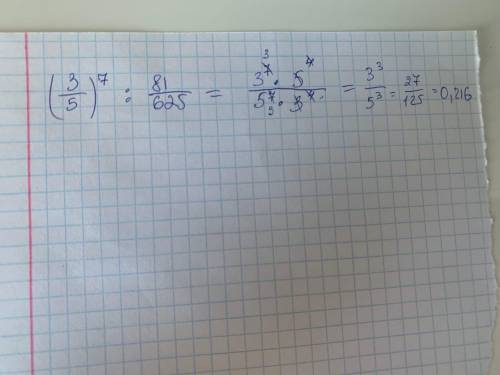 (3/5)^7 : 81/625 = (3^7 · 5^4)/(5^7 · 3^4) = 3^3/5^3 = 27/125 = 0,216